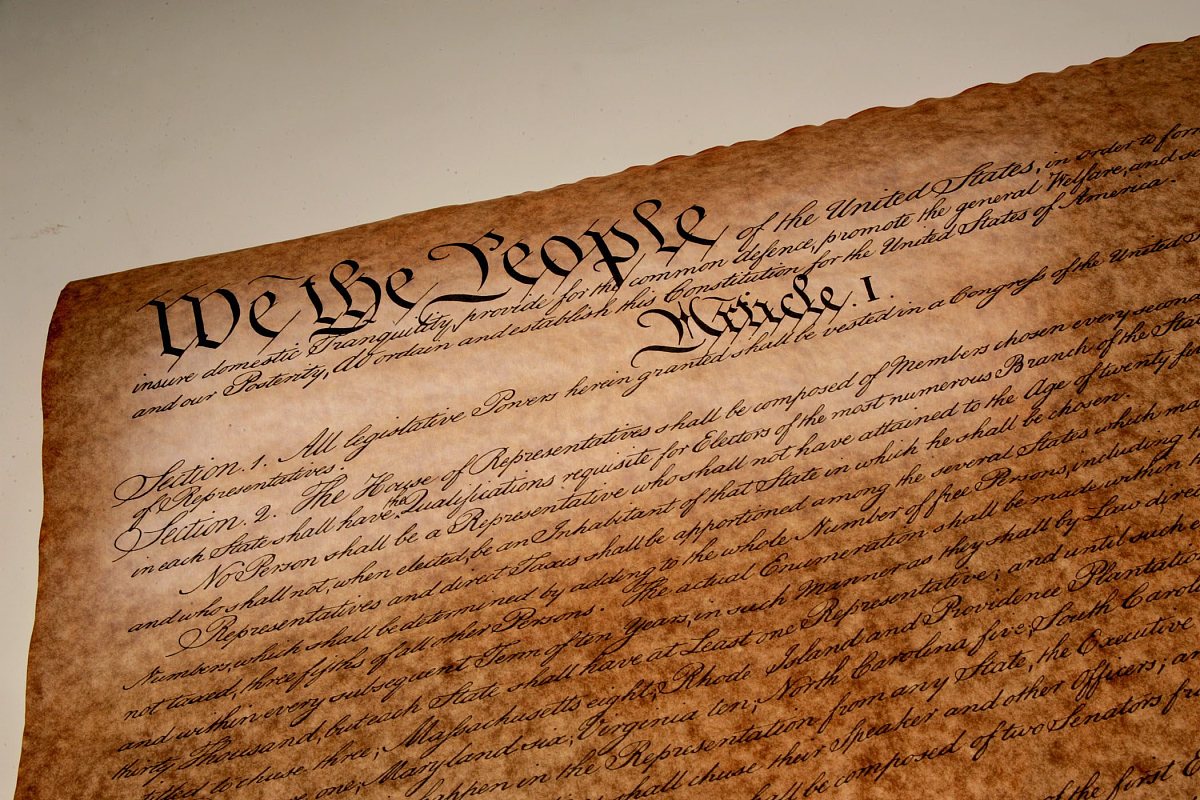 We the People of the United States, in order to for
insure domestic Tranquility, provide for the common defence, promote the general Welfare, and se
and our Posterity, do ordain and establish this Constitution for the United States of America.
Article. I.
Section. 1. All legislative Powers herein granted shall be vested in a Congress of the United
of Representatives.
Section. 2. The House of Representatives shall be composed of Members chosen every second
in each State shall have the Qualifications requisite for Electors of the most numerous Branch of the Sta
No Person shall be a Representative who shall not have attained to the Age of twenty fiv
and who shall not, when elected, be an Inhabitant of that State in which he shall be chosen.
Representatives and direct Taxes shall be apportioned among the several States which ma
Numbers, which shall be determined by adding to the whole Number of free Persons, including
not taxed, three fifths of all other Persons. The actual Enumeration shall be made within
and within every subsequent Term of ten Years, in such Manner as they shall by Law dire
thirty Thousand, but each State shall have at Least one Representative; and until such
to chuse three, Massachusetts eight, Rhode Island and Providence Plantatio
one, Maryland six, Virginia ten, North Carolina five, South Carol
happen in the Representation from any State, the Executive
shall chuse their Speaker and other Officers; an
be composed of two Senators fr
of the first